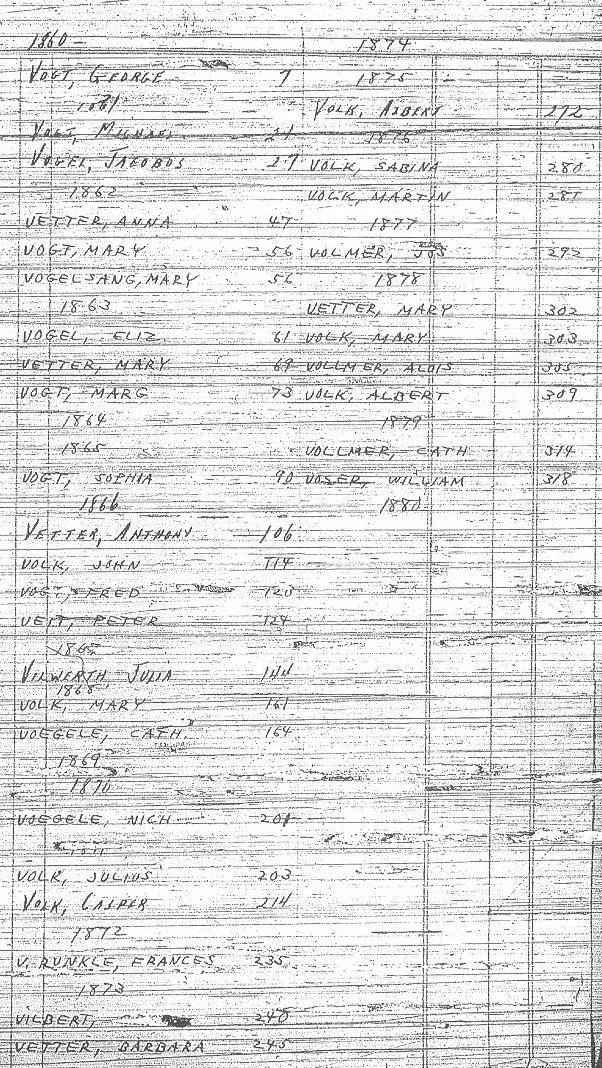 1860
VOGT, GEORGE 7
1861
VOGT, MICHAEL 21
VOGEL, JACOBUS 27
1862
VETTER, ANNA 47
VOGT, MARY 56
VOGELSANG, MARY 56
1863
VOGEL, ELIZ. 61
VETTER, MARY 69
VOGT, MARG 73
1864
1865
VOGT, SOPHIA 90
1866
VETTER, ANTHONY 106
VOLK, JOHN 114
VOGT, FRED
VEIT, PETER 124
VILWERTH, JULIA 144
1868
VOLK, MARY 161
VOEGELE, CATH. 164
1869
1870
VOEGELE, NICH 201
VOLK, JULIUS 203
VOLK, CASPER 214
1872
V. RUNKLE, FRANCES 235
1873
VILBERT, 240
VETTER, BARBARA 245
1874
1875
VOLK, ALBERT 272
1876
VOLK, SABINA 280
VOLK, MARTIN 287
1877
VOLMER, JOS 292
1878
VETTER, MARY 302
VOLK, MARY 303
VOLLMER, ALOIS 305
VOLK, ALBERT 309
1879
VOLLMER, CATH 314
VOSER, WILLIAM 318
1880